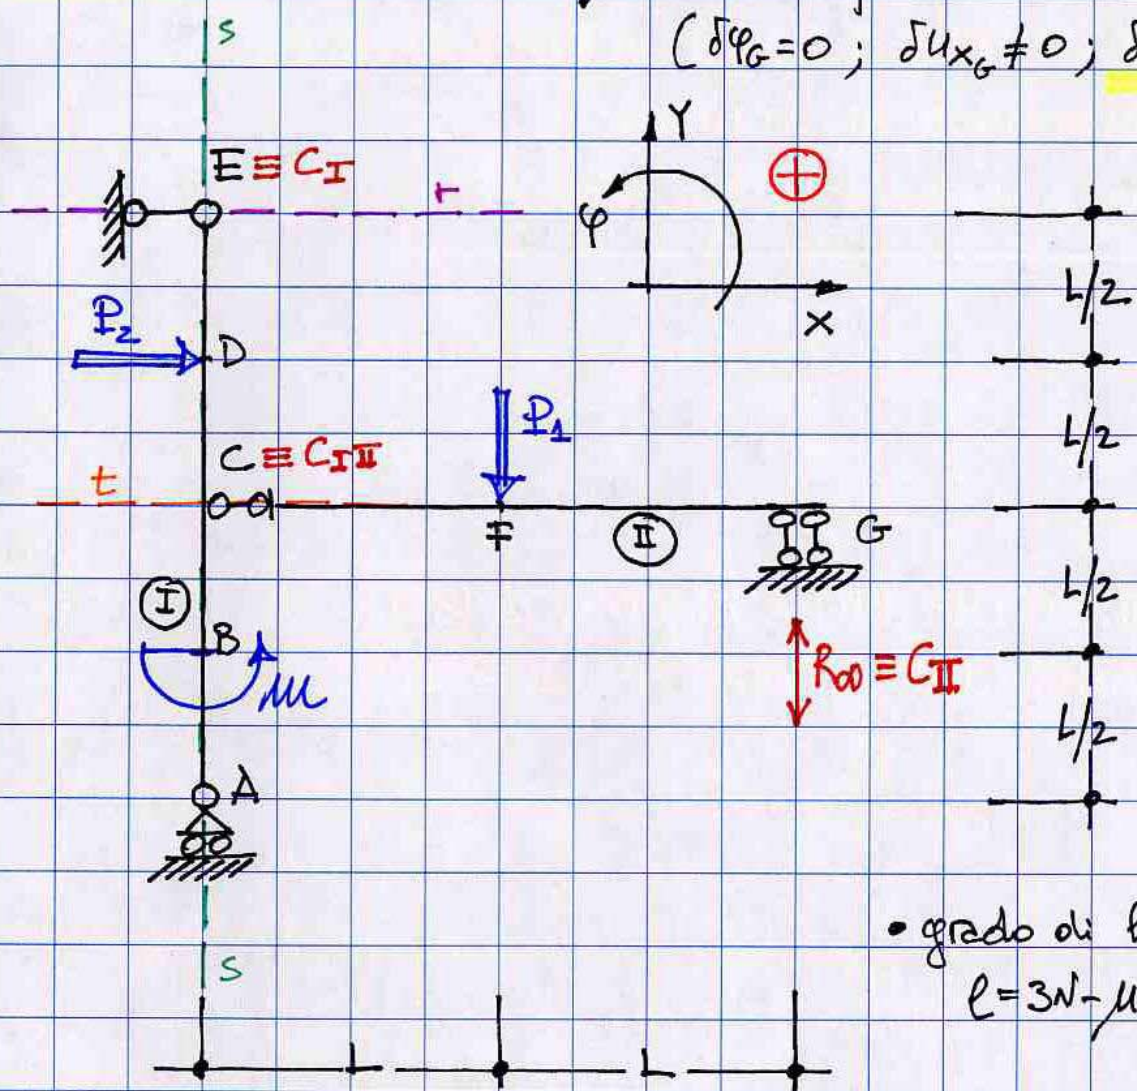 s
(δφ_G=0 ; δu_{x_G}≠0 ;
E ≡ C_I
r
Y
⊕
φ
X
L/2
P_2
D
P_1
L/2
C ≡ C_{I II}
t
F
II
G
I
B
L/2
R_∞ ≡ C_{II}
A
L/2
• grado di
s
ℓ=3N-
L
L